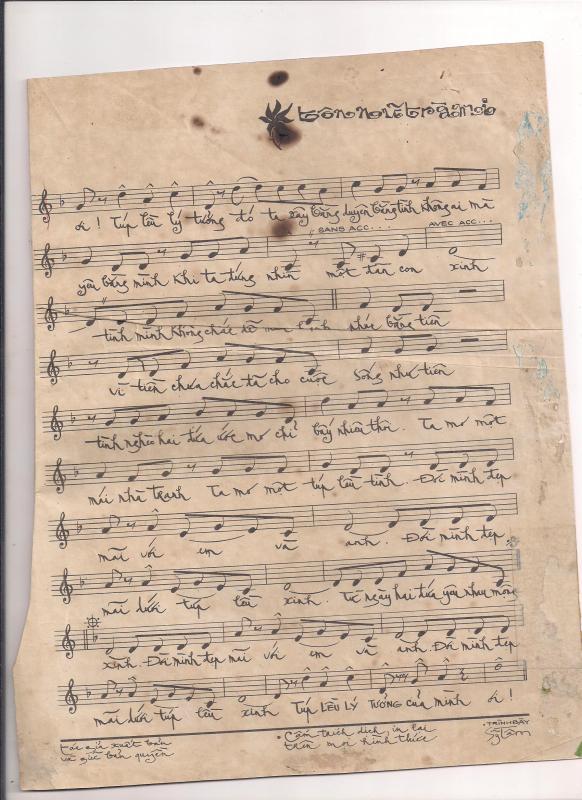 tôn nữ trà mi
ơi! Túp lều lý tưởng đó ta xây bằng duyên bằng tình không ai mà
SANS ACC... AVEC ACC...
yêu bằng mình khi ta đứng nhìn một đàn con xinh
tình mình không chắc nhác bằng tiên
vì tiền chưa chắc đã cho cuộc sống như tiên
tình nghèo hai đứa ước mơ chỉ bấy nhiêu thôi. Ta mơ một
mái nhà tranh Ta mơ một túp lều tình. Đời mình đẹp
mãi với em và anh. Đời mình đẹp
mãi dưới túp lều xinh. Từ ngày hai đứa yêu nhau mộng
xinh. Đời mình đẹp mãi với em và anh. Đời mình đẹp
mãi dưới túp lều xinh Túp LỀU LÝ TƯỞNG của mình ơi!
tác giả xuất bản
và giữ bản quyền
• Cấm trích dịch, in lại
trên mọi hình thức
• TRÌNH BÀY